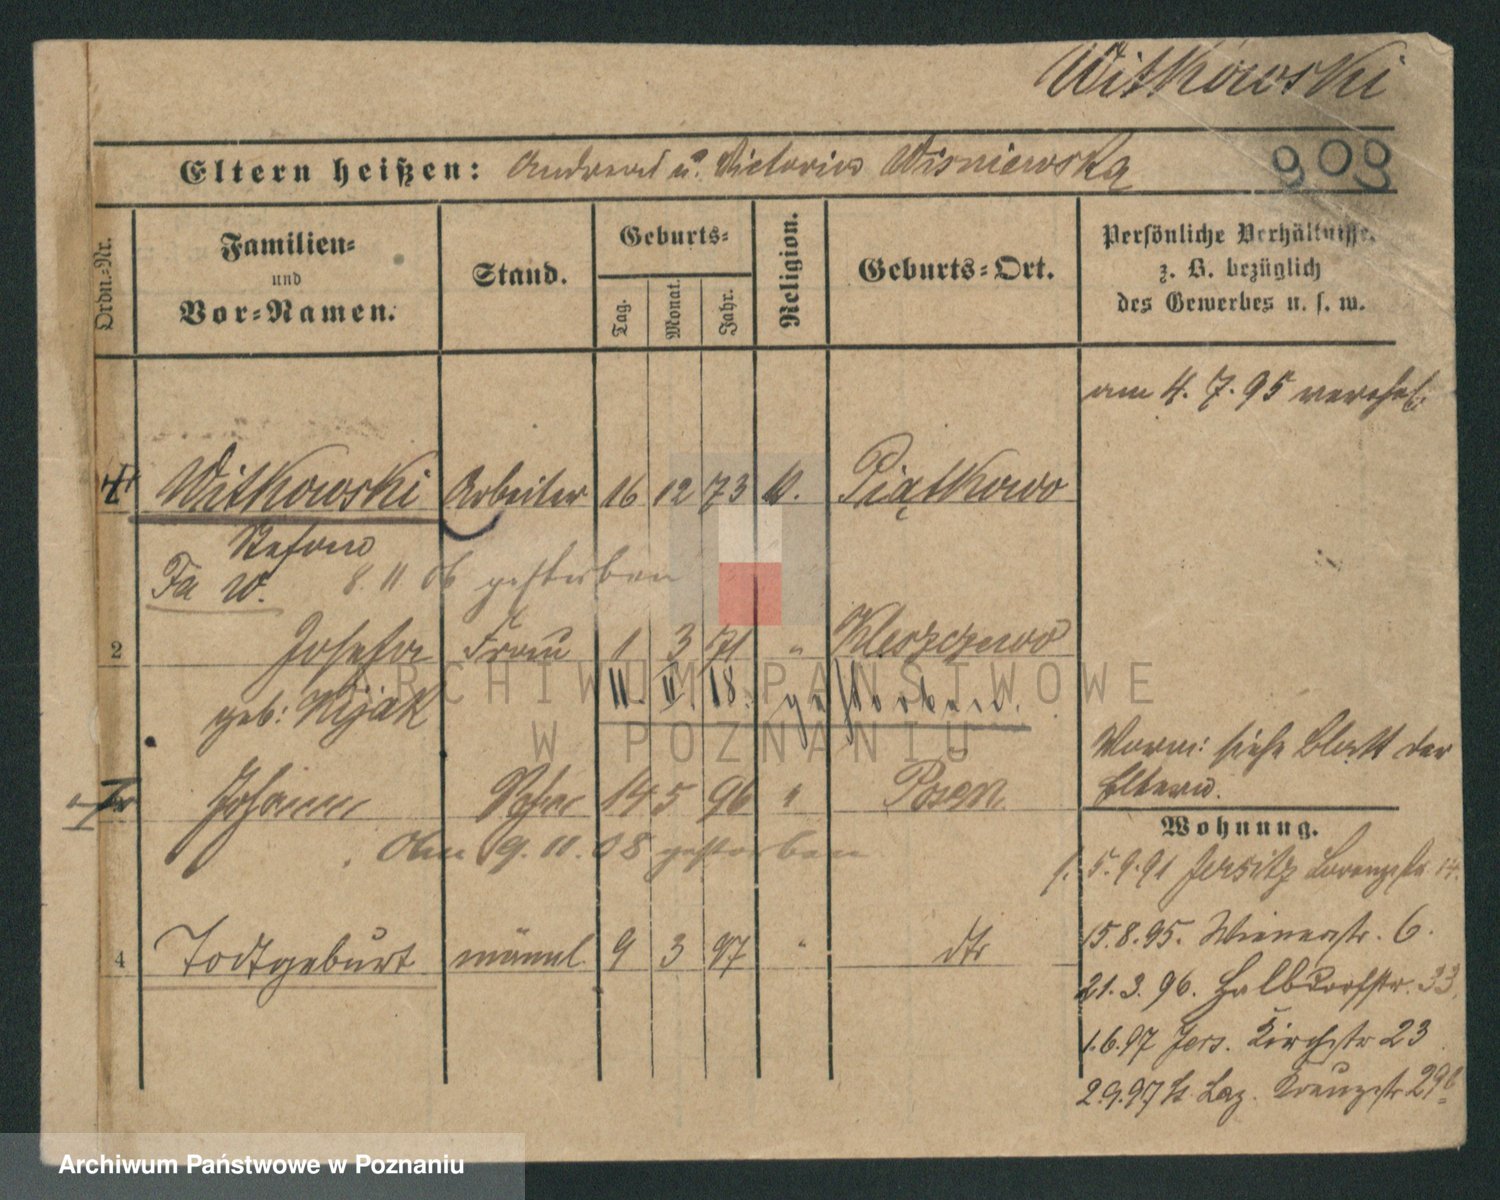 Witkowski
Eltern heißen: Andreas u. Victoria Wisniewska
903
Ordn.=Nr.
Familien=
und
Vor=Namen.
Stand.
Geburts=
Tag.
Monat.
Jahr.
Religion.
Geburts=Ort.
Persönliche Verhältnisse,
z. B. bezüglich
des Gewerbes u. s. w.
am 4. 7. 95 verehel.
Witkowski Arbeiter 16 12 73 Piątkowo
Stefan
Fa W. 8. 11 06 gestorben
2 Josefa Frau 1 3 71 " Kleszczewo
geb: Kijak
11. II. 18. gestorben.
Vorm: siehe Blatt der
Eltern.
Johann Sohn 14 5 96 " Posen
9. 11. 08 gestorben
Wohnung.
5. 9. 91 Jersitz 14.
4 Todtgeburt männl 9 3 97 " dto
15. 8. 95. Wienerstr. 6.
21. 3. 96. Halbdorfstr. 33.
1. 6. 97 Jers. Kirchstr 23
2. 9. 97 St. Laz. Kreuzstr 29b
ARCHIWUM PAŃSTWOWE
W POZNANIU
Archiwum Państwowe w Poznaniu